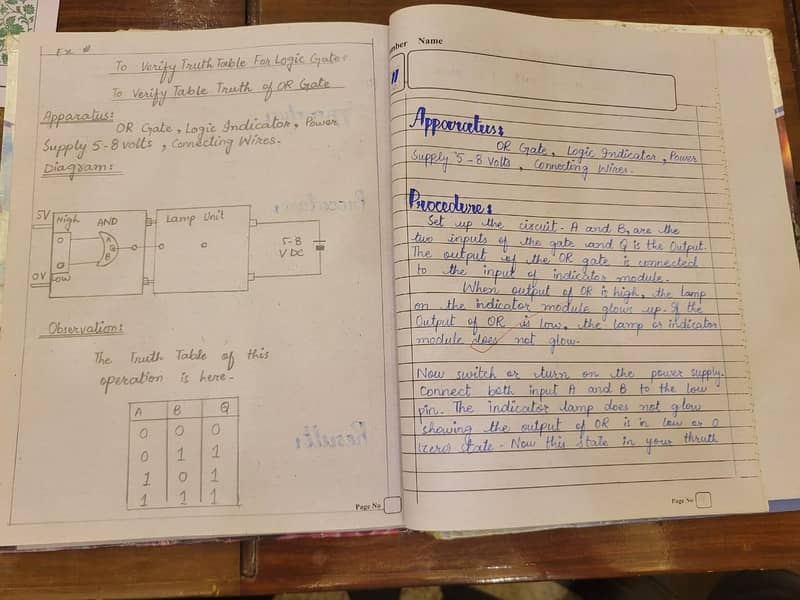 Ex #
To Verify Truth Table For Logic Gate:
To Verify Table Truth of OR Gate
Apparatus:
OR Gate, Logic Indicator, Power
Supply 5-8 volts, Connecting Wires.
Diagram:
5V
High
AND
Lamp Unit
A
Q
B
5-8
V DC
0V
Low
Observation:
The Truth Table of this
operation is here-
A B Q
0 0 0
0 1 1
1 0 1
1 1 1
Page No
Name
11
Apparatus:
OR Gate, Logic Indicator, Power
Supply 5-8 Volts, Connecting Wires.
Procedure:
Set up the circuit. A and B, are the
two inputs of the gate and Q is the Output.
The output of the OR gate is connected
to the input of indicator module.
When output of OR is high, the lamp
on the indicator module glows up. If the
Output of OR is low, the lamp or indicator
module does not glow.
Now switch or turn on the power supply.
Connect both input A and B to the low
pin. The indicator lamp does not glow
showing the output of OR is in low or 0
(zero) state. Now this state in your thruth
Page No